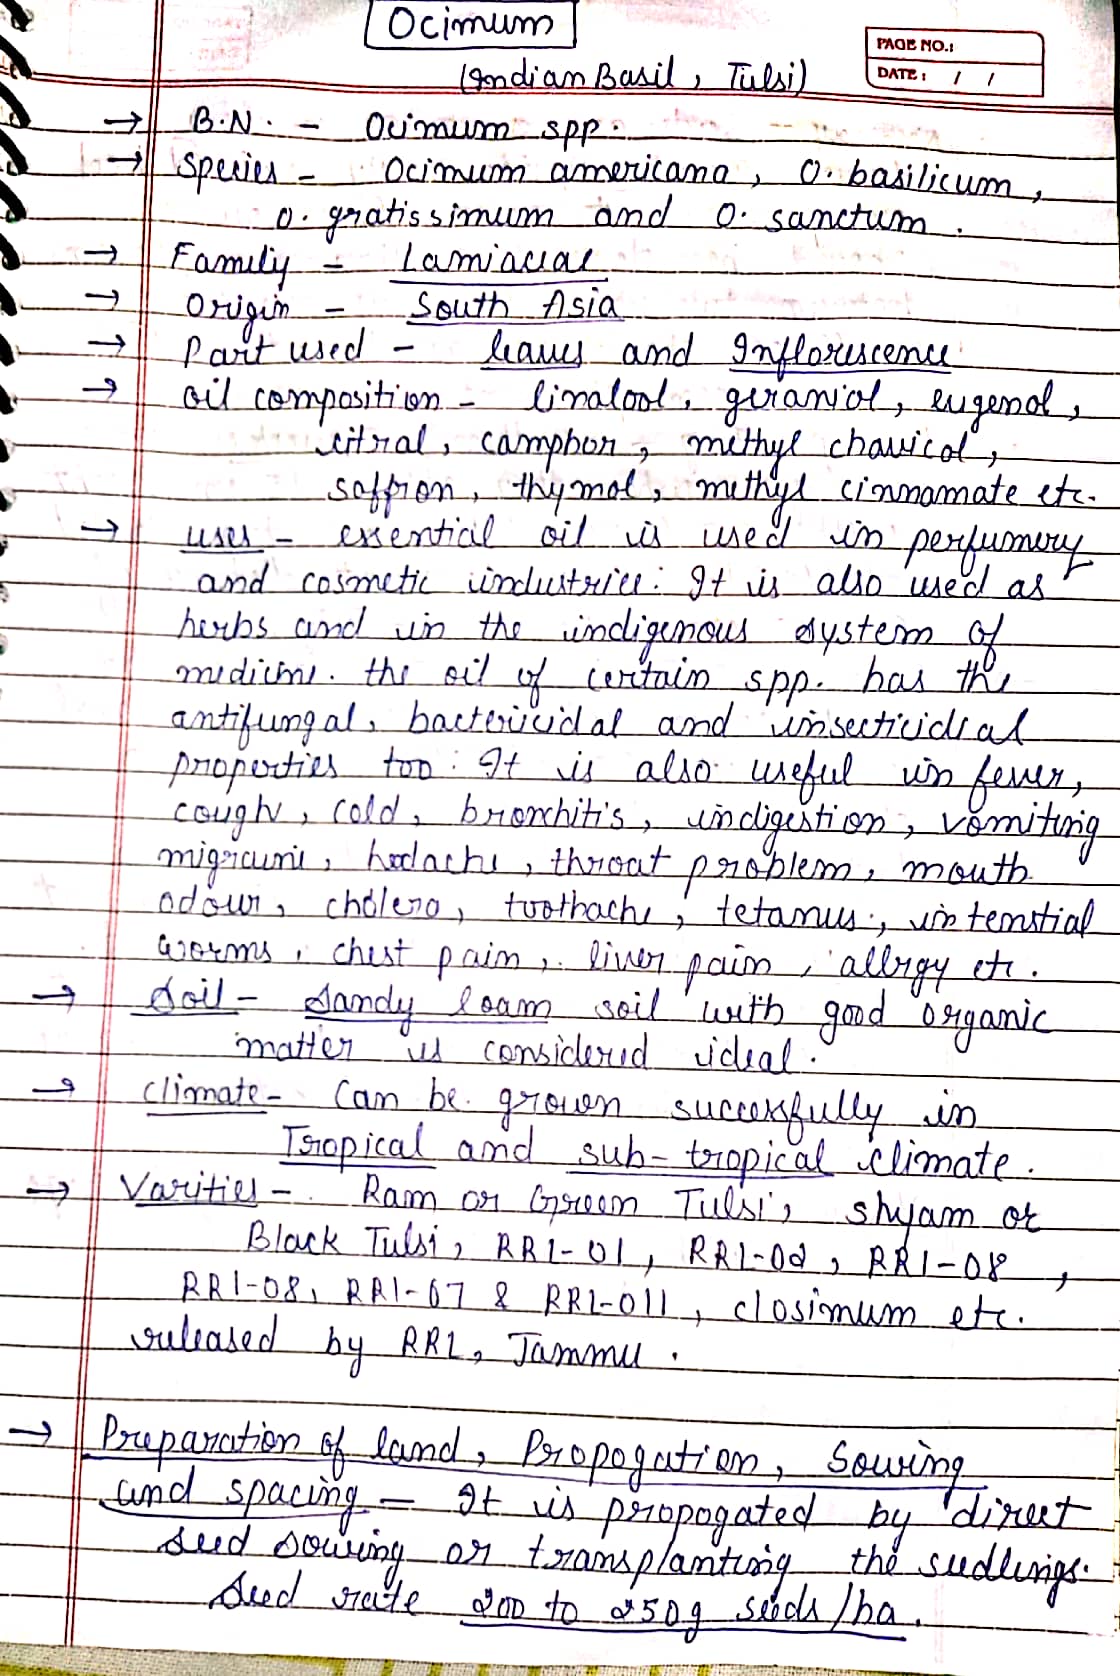 Ocimum
PAGE NO.:
DATE: / /
(Indian Basil, Tulsi)
→ B.N. - Ocimum spp.
→ Species - Ocimum americana, O. basilicum,
O. gratissimum and O. sanctum.
→ Family - Lamiaceae
→ Origin - South Asia
→ Part used - leaves and Inflorescence
→ Oil composition - linalool, geraniol, eugenol,
citral, camphor, methyl chavicol,
saffron, thymol, methyl cinnamate etc.
→ uses - essential oil is used in perfumery
and cosmetic industries. It is also used as
herbs and in the indigenous system of
medicine. the oil of certain spp. has the
antifungal, bactericidal and insecticidal
properties too. It is also useful in fever,
cough, cold, bronchitis, indigestion, vomiting
migraine, hedache, throat problem, mouth
odour, cholera, toothache, tetanus, intenstial
worms, chest pain, liver pain, allergy etc.
→ Soil - Sandy loam soil with good organic
matter is considered ideal.
→ Climate - Can be grown successfully in
Tropical and sub-tropical climate.
→ Varities - Ram or Green Tulsi, shyam or
Black Tulsi, RRL-01, RRL-02, RRL-08,
RRL-08, RRL-07 & RRL-011, closimum etc.
released by RRL, Jammu.
→ Preparation of land, Propogation, Sowing
and spacing - It is propogated by direct
seed sowing or transplanting the seedlings.
Seed rate 200 to 250g seeds/ha.